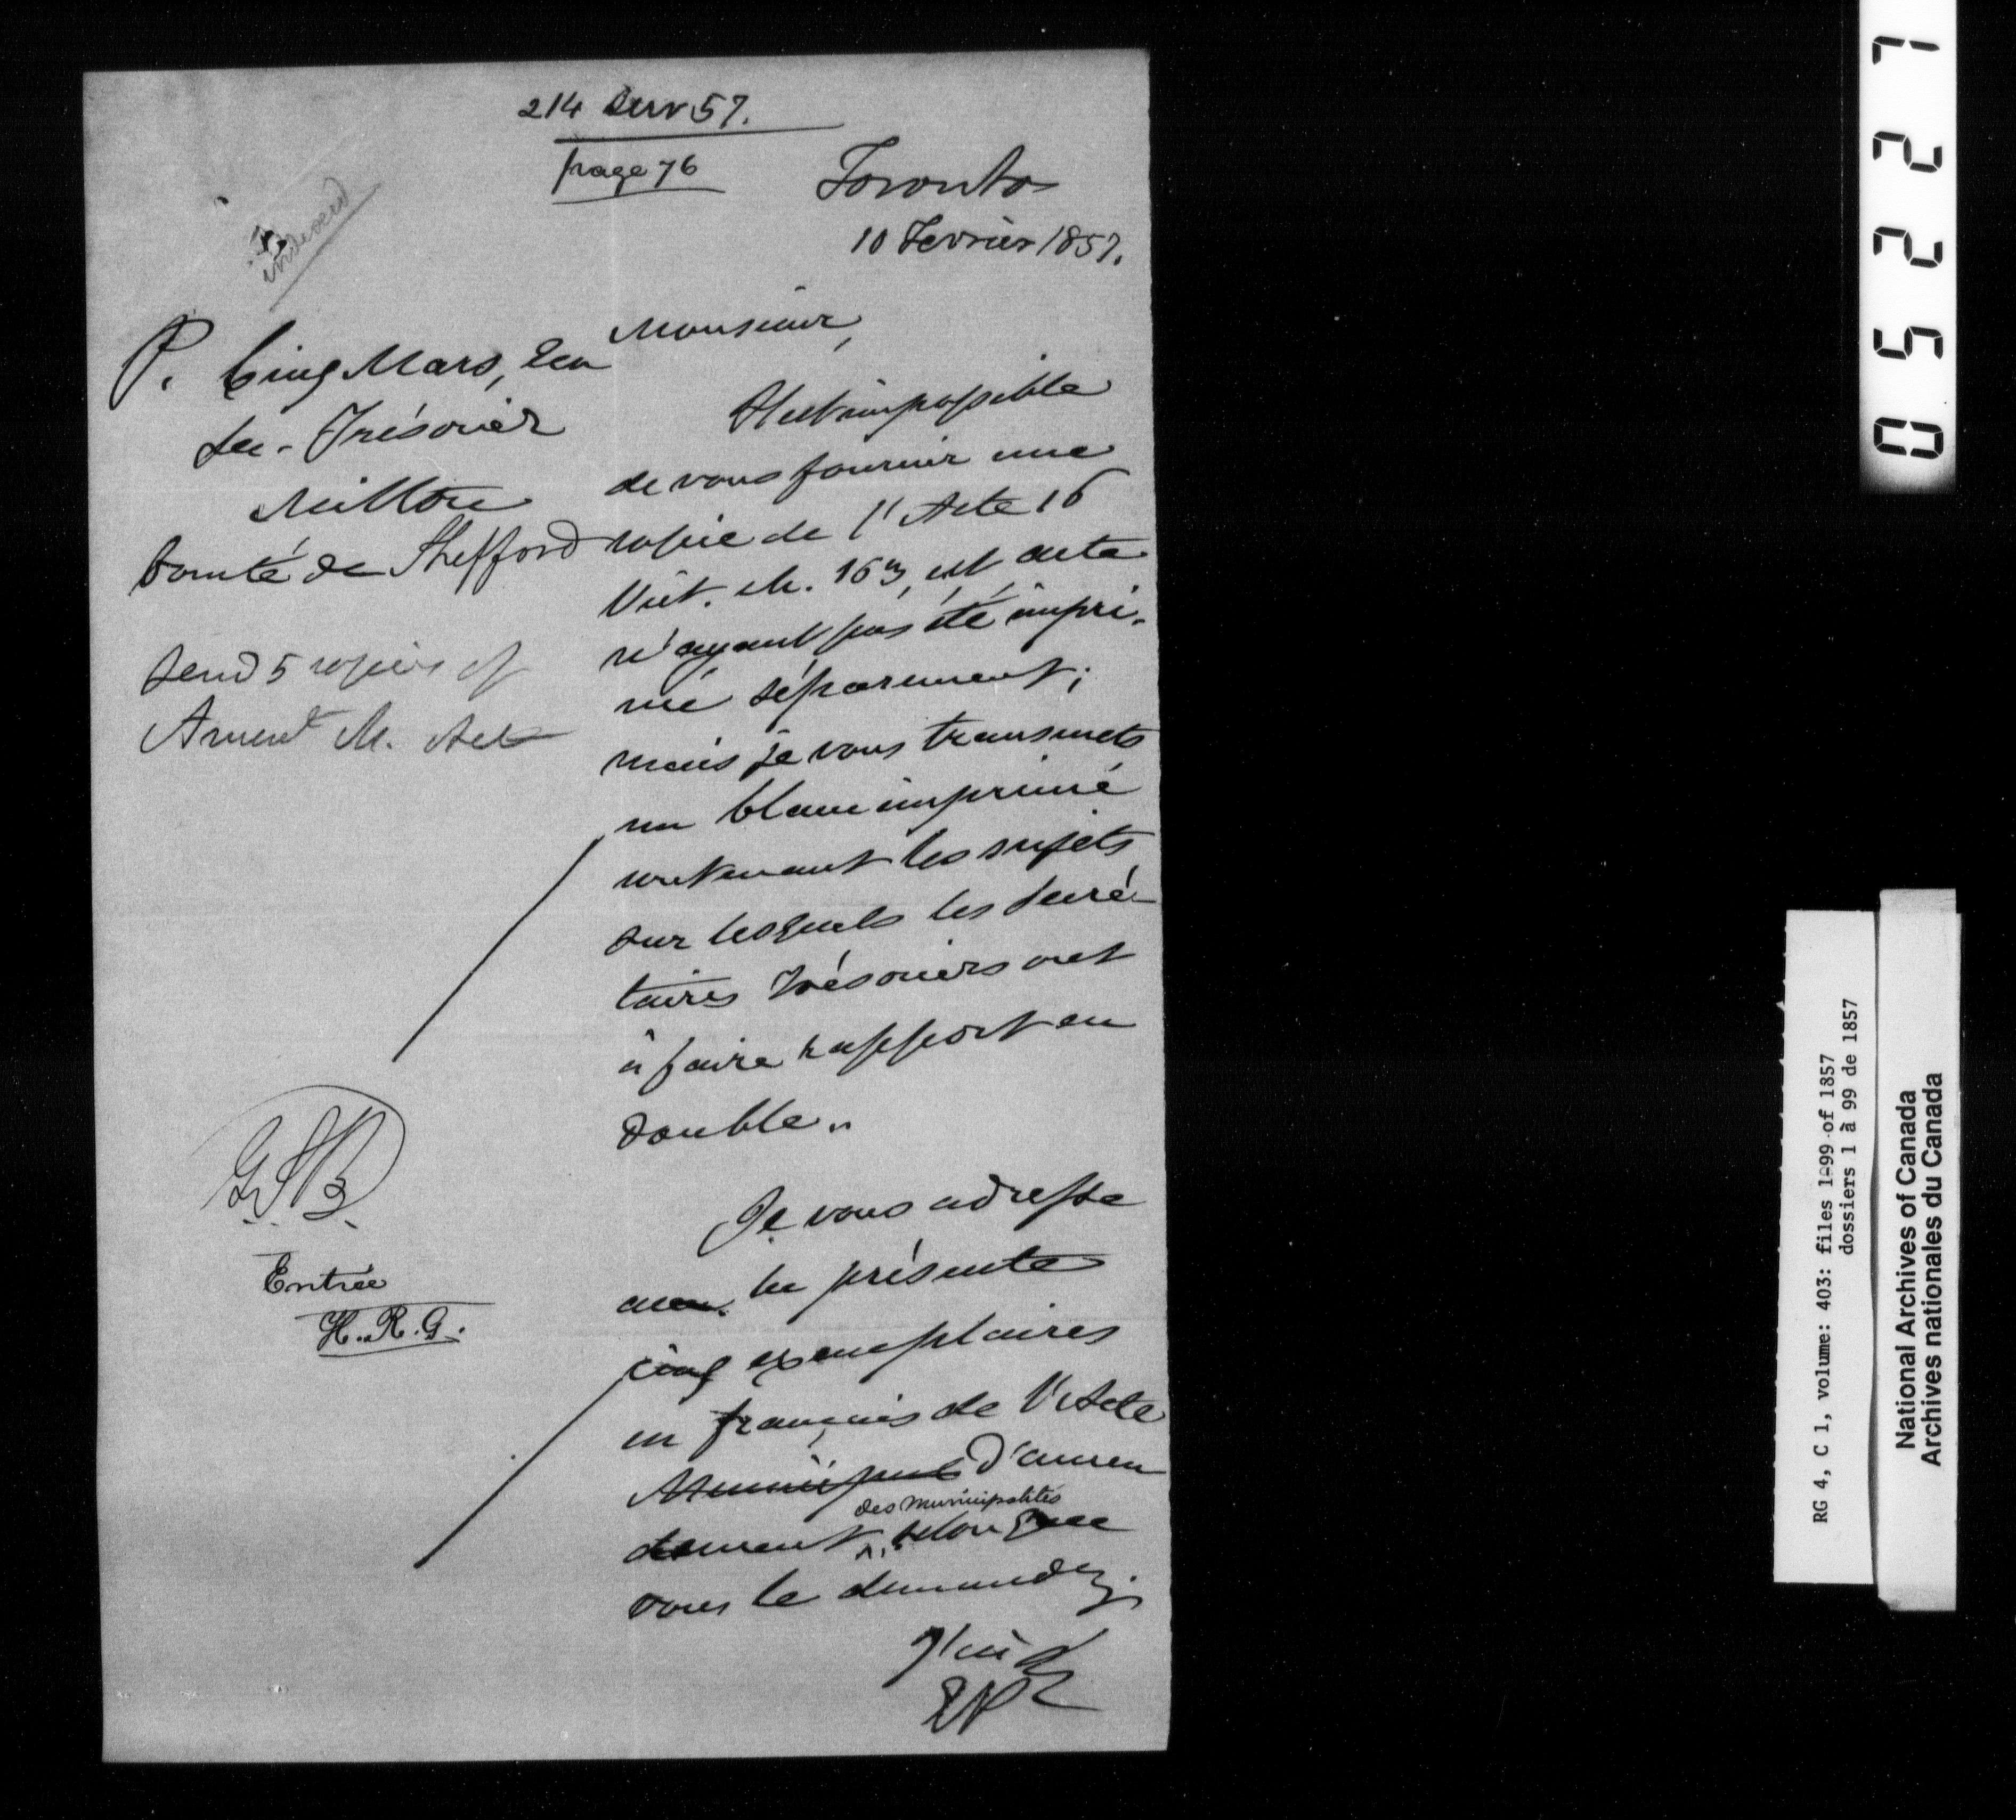 214 Serv 57.
page 76
Toronto
10 Fevrier 1857.
P. Cinq Mars, Ecr
Sec-Trésorier
Milton
Comté de Shefford
Send 5 copies of
Amend M. Act
Monsieur,
Il est impossible
de vous fournir une
copie de l'Acte 16
Vict. ch. 163, cet acte
n'ayant pas été impri-
mé séparement;
mais je vous transmets
un blanc imprimé
contenant les sujets
sur lesquels les Secré-
taires Trésoriers ont
à faire rapport en
double.
Je vous adresse
avec la présente
cinq exemplaires
en français de l'Acte
Municipal d'amen
dement des Municipalités selon que
vous le demandez.
J'ai &
Entrée
H.R.G.
05227
RG 4, C 1, volume: 403: files 1-99 of 1857
dossiers 1 à 99 de 1857
National Archives of Canada
Archives nationales du Canada